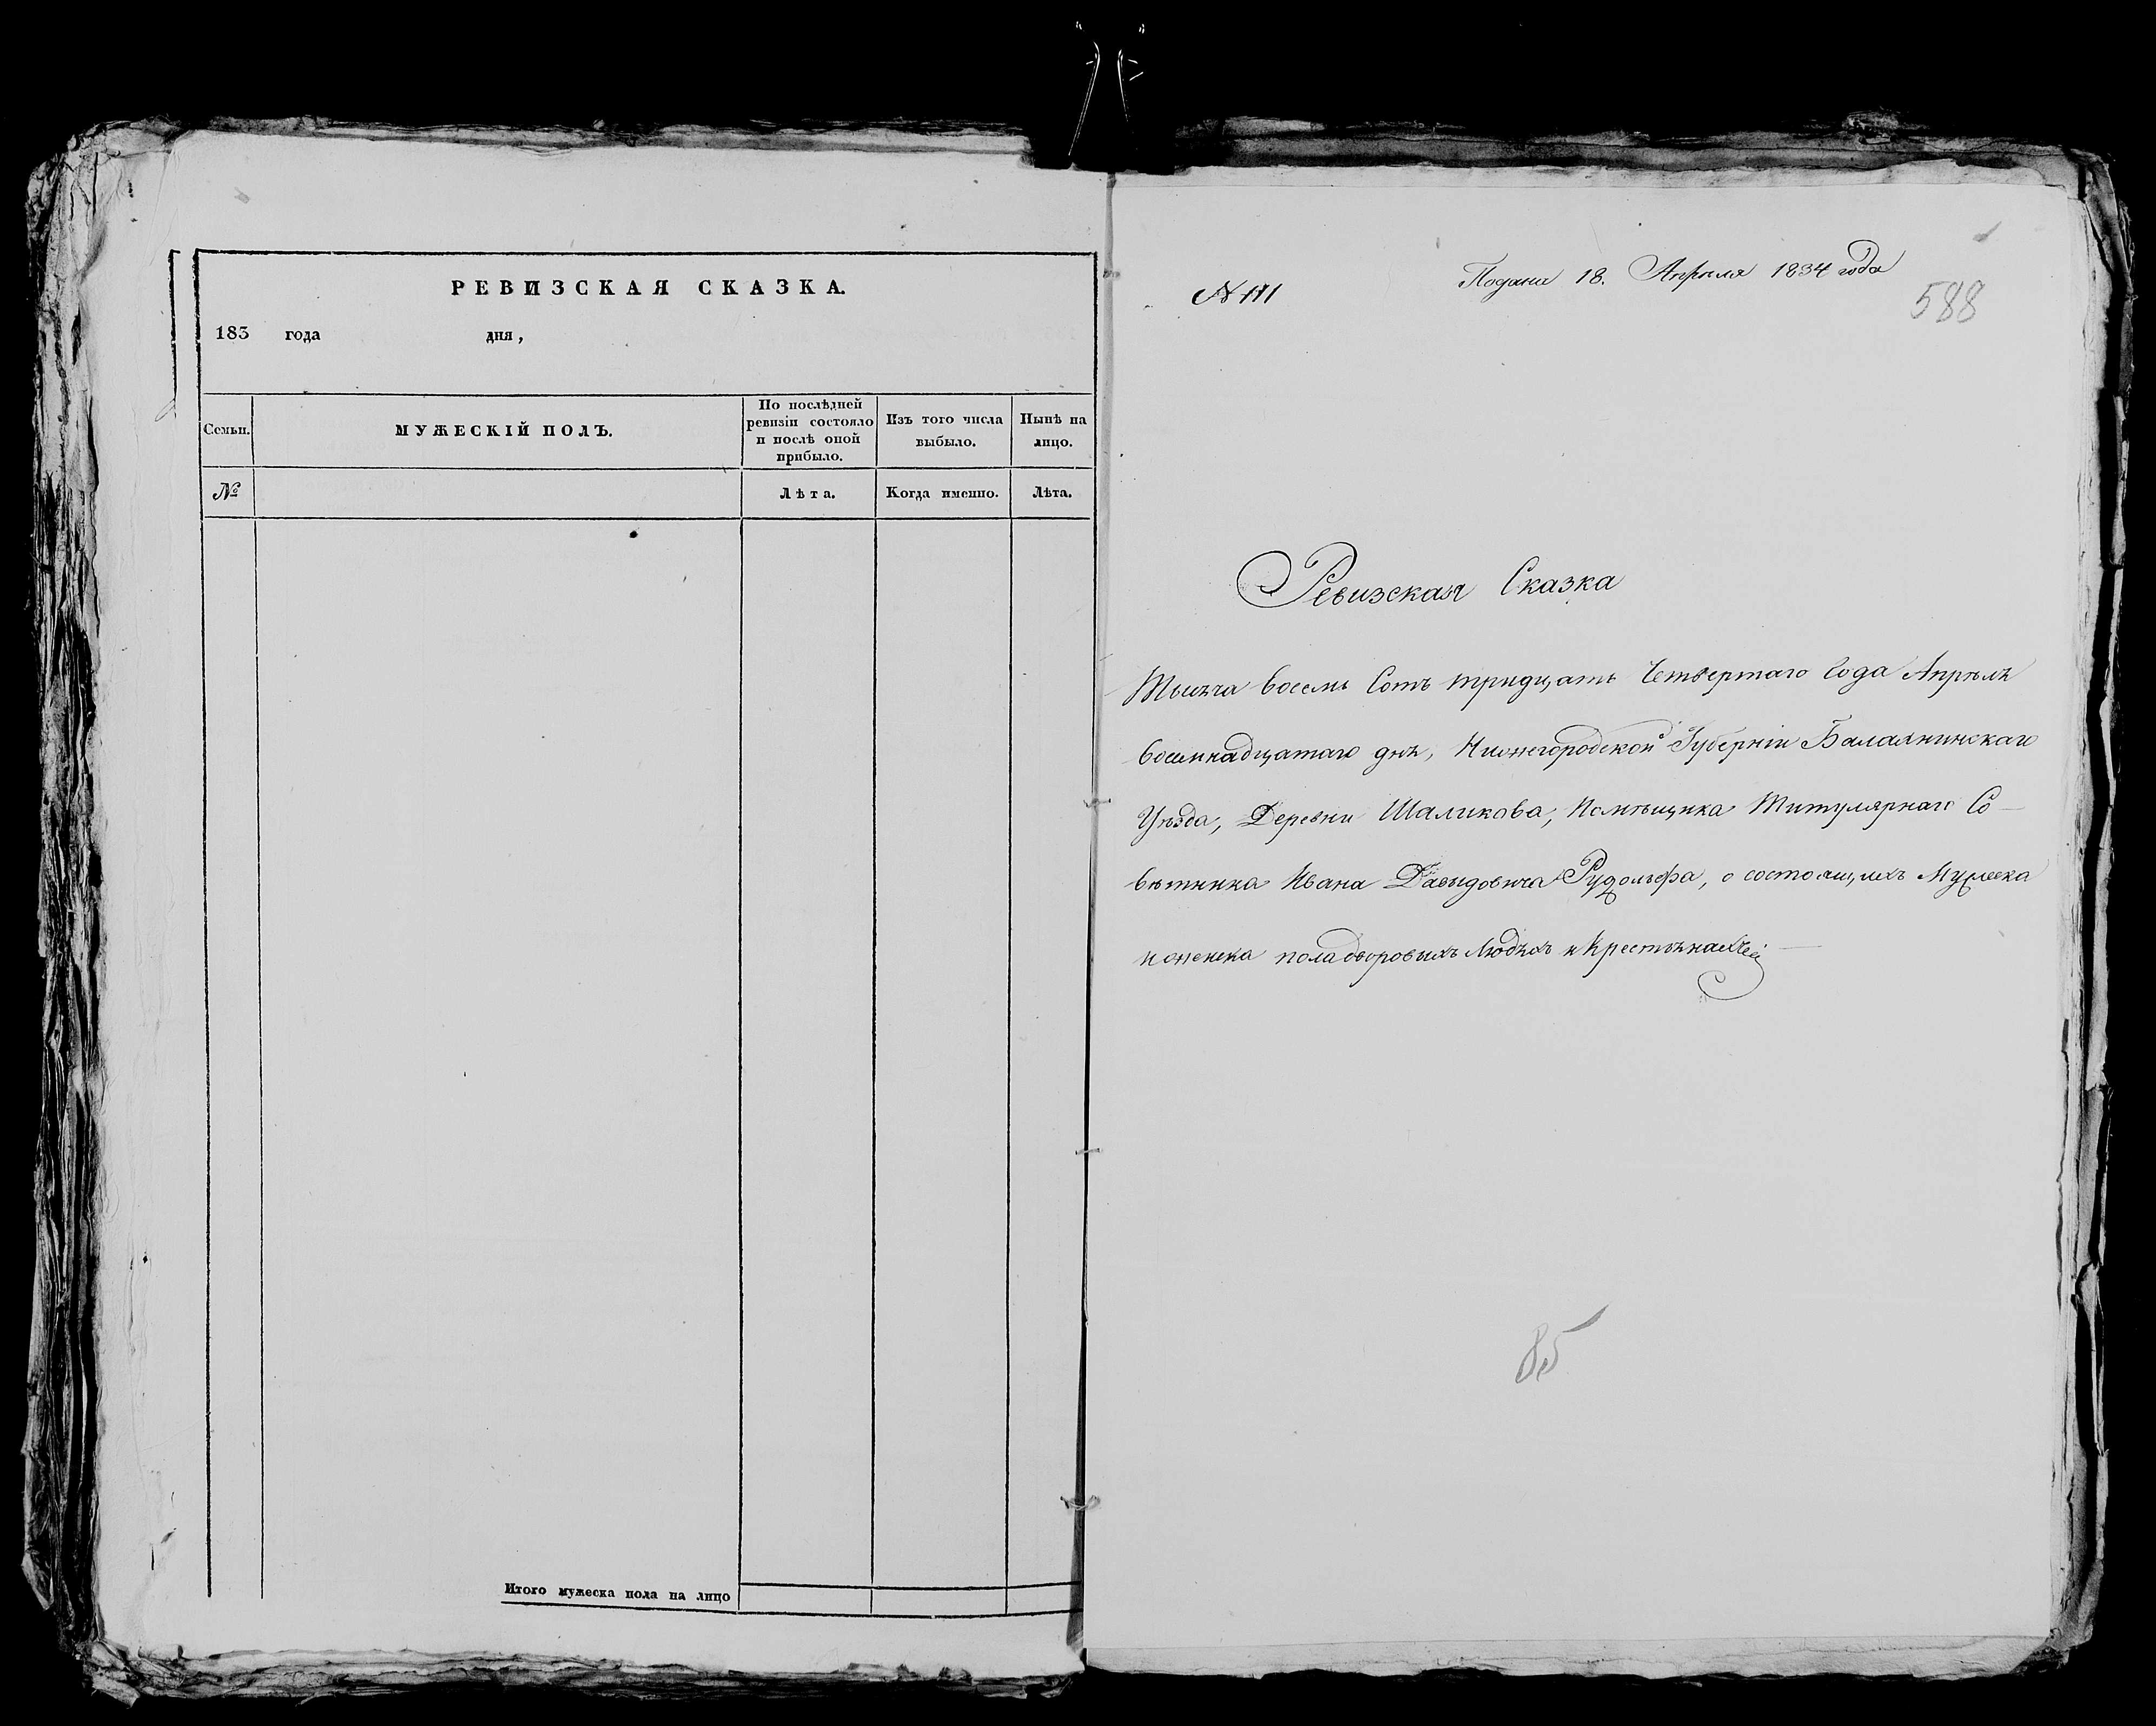 РЕВИЗСКАЯ СКАЗКА.
183 года дня,
Семьи.
МУЖЕСКІЙ ПОЛЪ.
По послѣдней
ревизіи состояло
и послѣ оной
прибыло.
Изъ того числа
выбыло.
Нынѣ на
лицо.
№
Лѣта.
Когда именно.
Лѣта.
Итого мужеска пола на лицо
№ 111
Подана 18. Апрѣля 1834 года
588
Ревизская Сказка
Тысяча восемь Сотъ тридцать Четвертаго Года Апрѣля
восемнадцатаго дня, Нижегородской Губерніи Балахнинскаго
Уѣзда, Деревни Шаликова, Помѣщика Титулярнаго Со-
вѣтника Ивана Давыдовича Рудольфа, о состоящихъ Мужеска
и женска пола дворовыхъ Людяхъ и Крестьянахъ
85